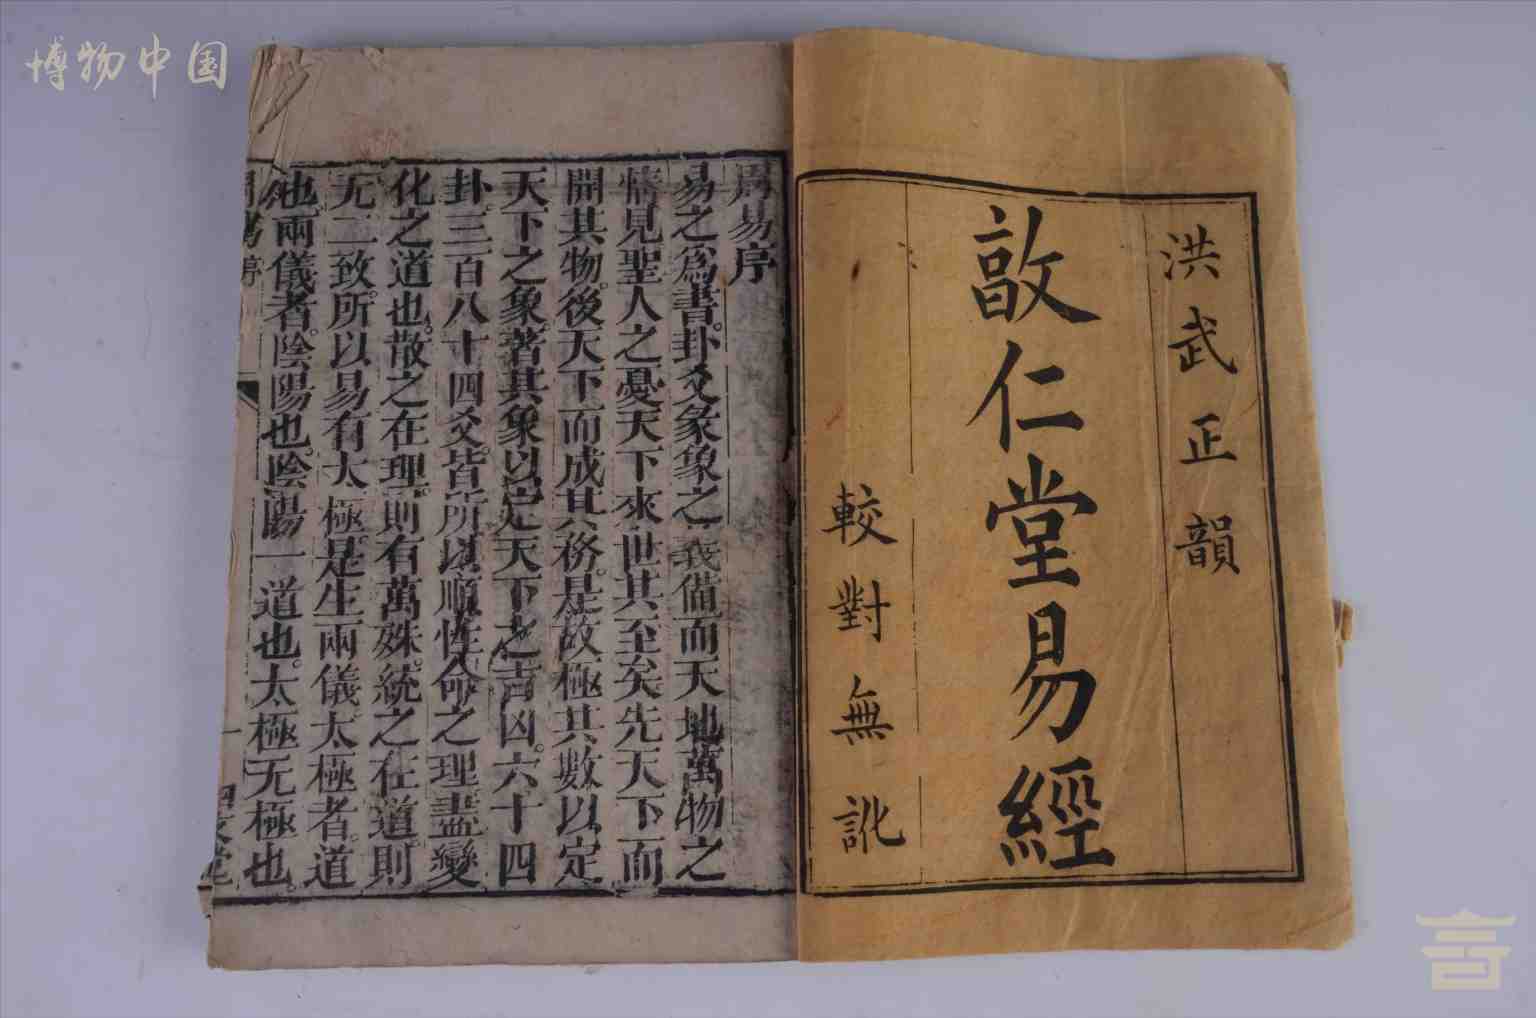 博物中国
洪武正韻
敦仁堂易經
較對無訛
周易序
易之爲書。卦爻彖象之義備而天地萬物之
情見聖人之憂天下來世其至矣先天下而
開其物。後天下而成其務。是故極其數以定
天下之象著其象以定天下之吉凶。六十四
卦三百八十四爻。皆所以順性命之理盡變
化之道也。散之在理。則有萬殊。統之在道。則
无二致。所以易有太極。是生兩儀太極者。道
也兩儀者。陰陽也。陰陽一道也。太極无極也。